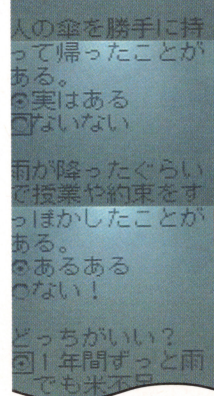 人の傘を勝手に持
って帰ったことが
ある。
⦿実はある
○ないない
雨が降ったぐらい
で授業や約束をす
っぽかしたことが
ある。
⦿あるある
○ない！
どっちがいい？
⦿1年間ずっと雨
でも米不足